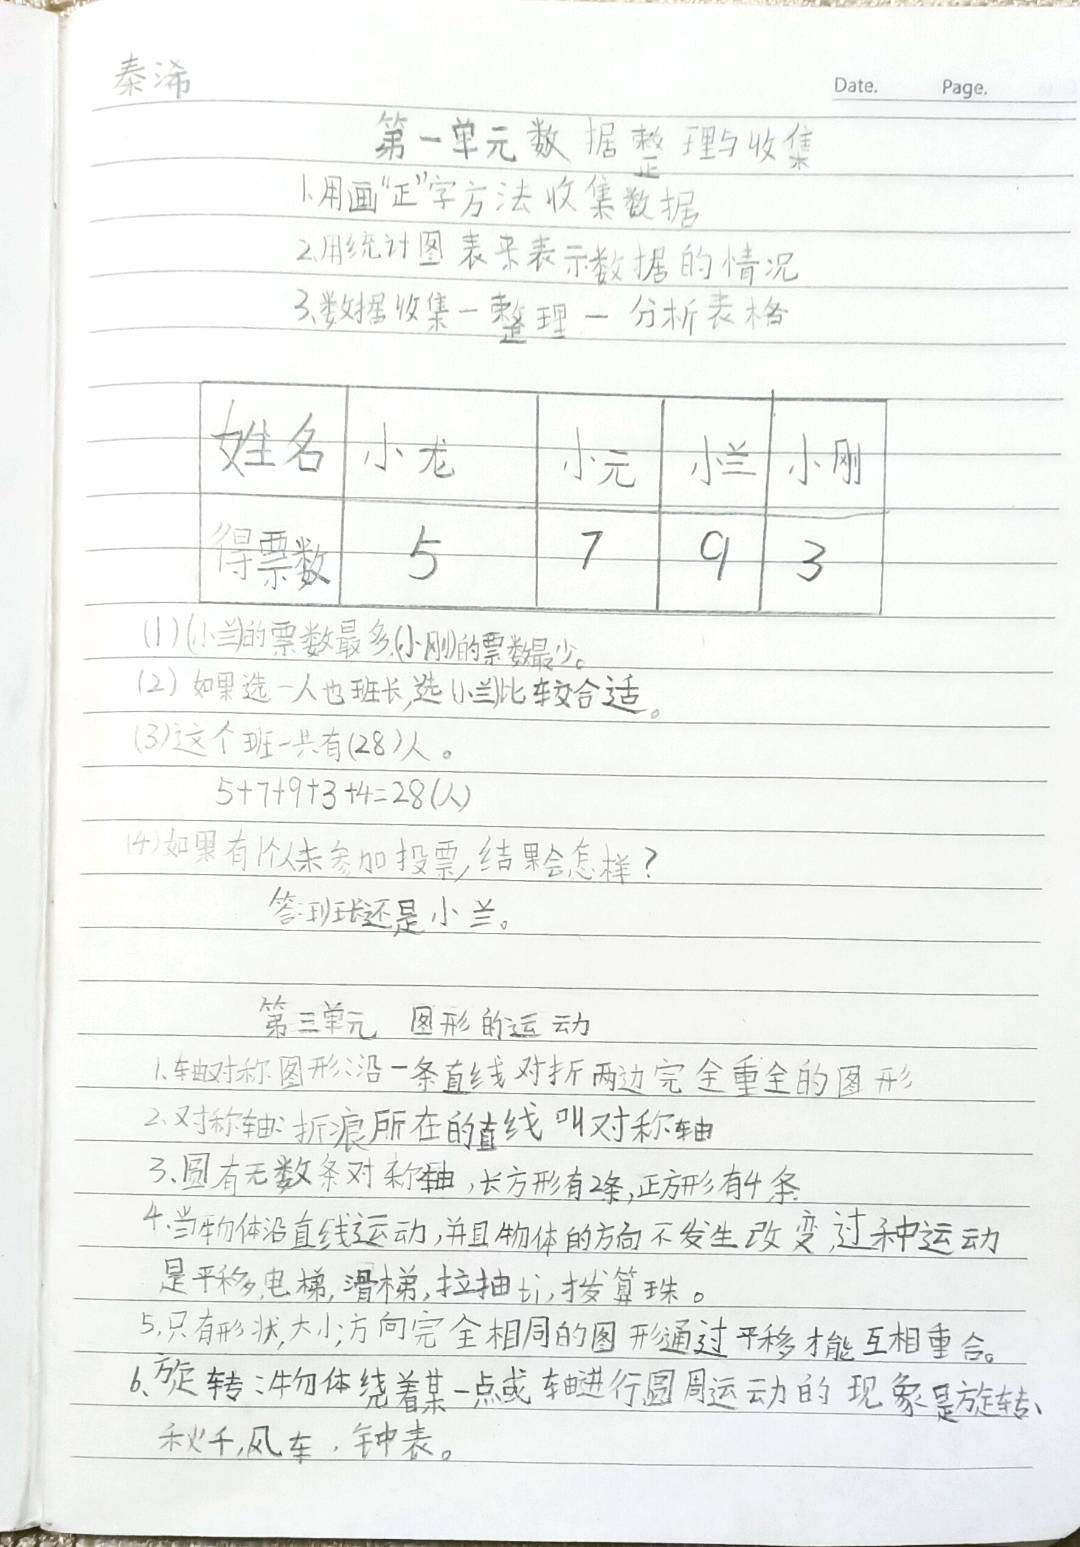 秦浠
Date. Page.
第一单元数据整理与收集
1.用画“正”字方法收集数据
2.用统计图表来表示数据的情况
3.数据收集一整理一分析表格
姓名 小龙 小元 小兰 小刚
得票数 5 7 9 3
(1)(小兰)的票数最多,(小刚)的票数最少。
(2)如果选一人也班长,选(小兰)比较合适。
(3)这个班一共有(28)人。
5+7+9+3+4=28(人)
(4)如果有1个人未参加投票,结果会怎样?
答:班长还是小兰。
第三单元 图形的运动
1.轴对称图形:沿一条直线对折两边完全重全的图形
2.对称轴:折痕所在的直线叫对称轴
3.圆有无数条对称轴,长方形有2条,正方形有4条
4.当物体沿直线运动,并且物体的方向不发生改变,过种运动
是平移,电梯,滑梯,拉抽ti,拨算珠。
5.只有形状,大小,方向完全相同的图形通过平移才能互相重合。
6、旋转:物体绕着某一点或轴进行圆周运动的现象是旋转、
秋千,风车,钟表。